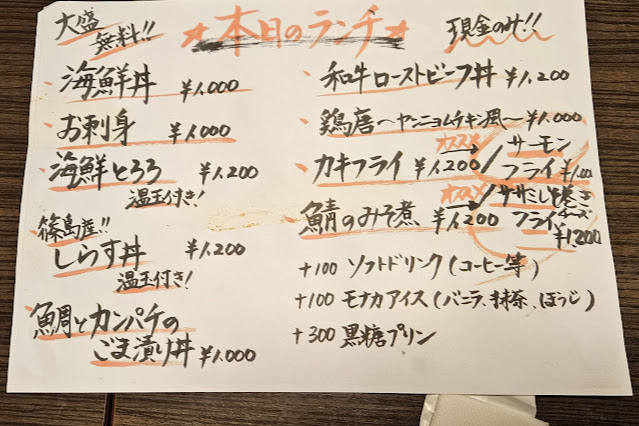 大盛
無料!!
★本日のランチ★
現金のみ!!
海鮮丼 ¥1,000
お刺身 ¥1,000
海鮮とろろ ¥1,200
温玉付き!
篠島産!!
しらす丼 ¥1,200
温玉付き!
鯛とカンパチの
ごま漬り丼 ¥1,000
和牛ローストビーフ丼 ¥1,200
鶏唐〜ヤンニョムチキン風〜 ¥1,000
カキフライ ¥1,200 /
オススメ
サーモン
フライ
鯖のみそ煮 ¥1,200 /
オススメ
ササミしそ巻き
チーズ
フライ
¥1,200
+100 ソフトドリンク(コーヒー等)
+100 モナカアイス(バニラ、抹茶、ほうじ)
+300 黒糖プリン